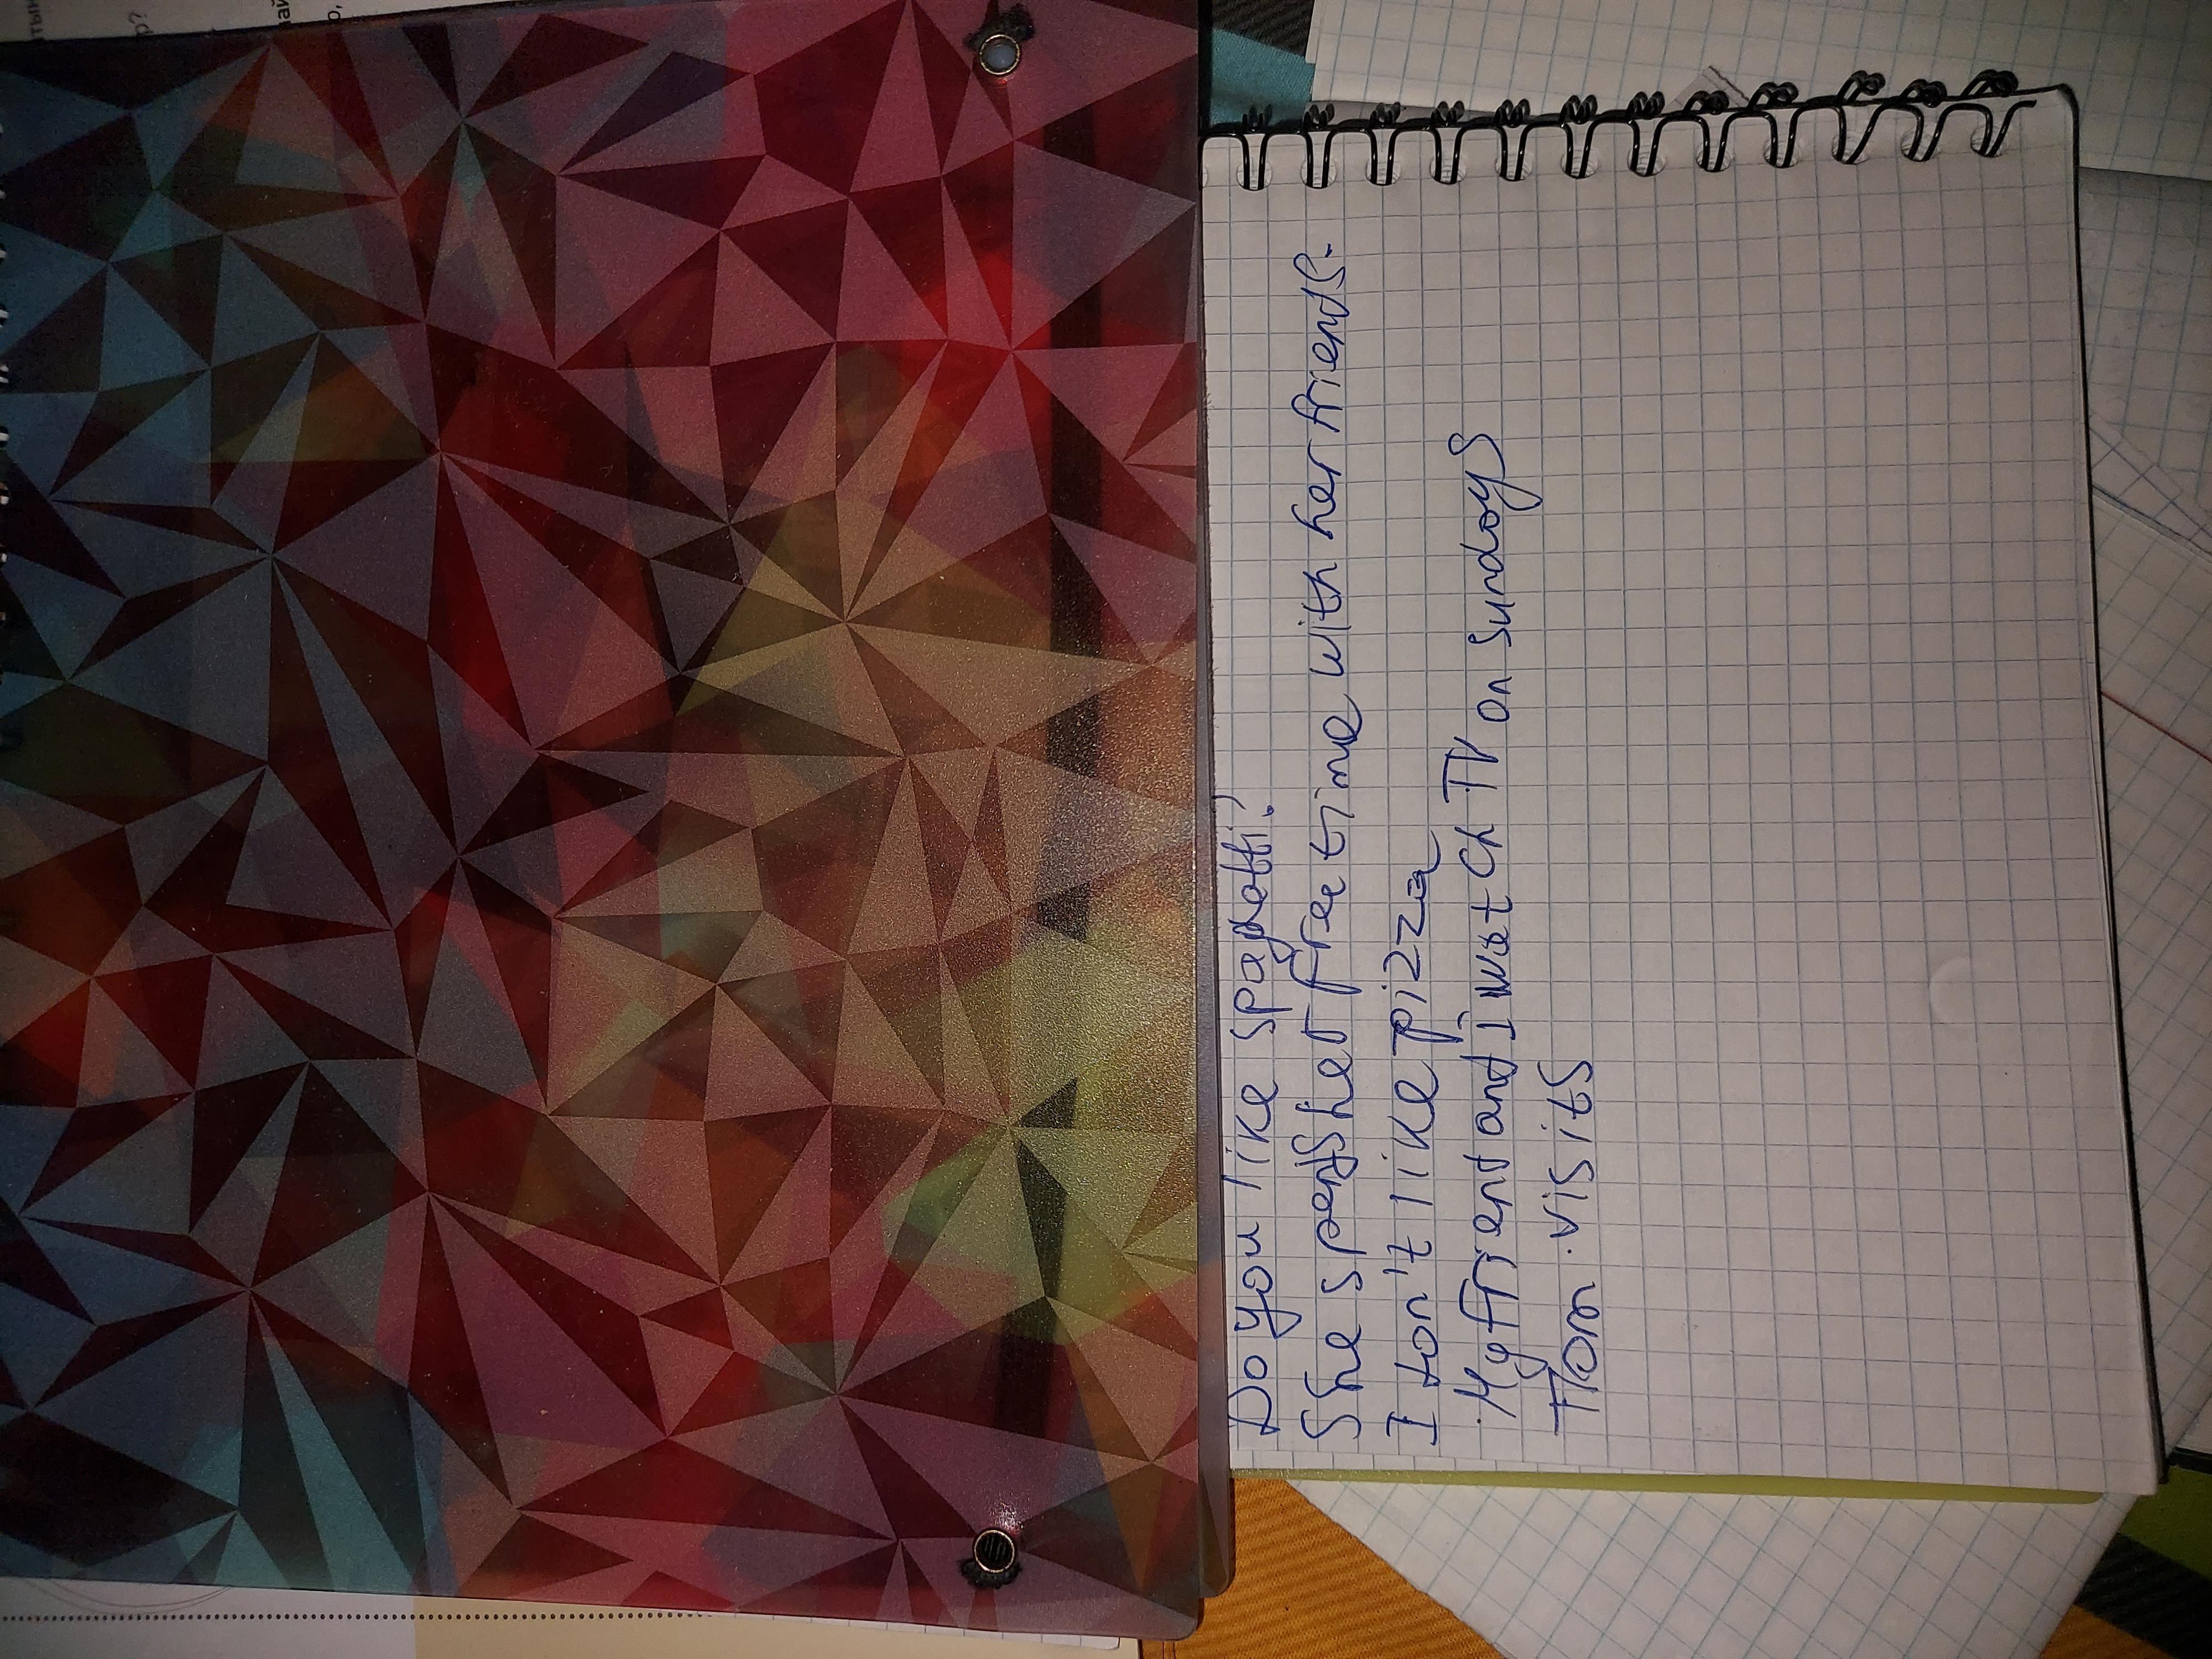 Do you like spaghetti?
She spends her free time with her friends.
I don't like pizza
My friend and I watch TV on Sundays
Tom visits